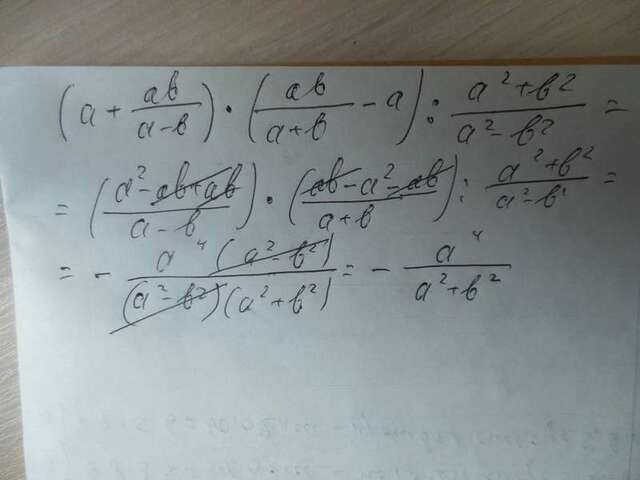 (a + ab/(a-b)) · (ab/(a+b) - a) : (a²+b²)/(a²-b²) =
= ((a²-ab+ab)/(a-b)) · ((ab-a²-ab)/(a+b)) : (a²+b²)/(a²-b²) =
= - a⁴(a²-b²)/((a²-b²)(a²+b²)) = - a⁴/(a²+b²)